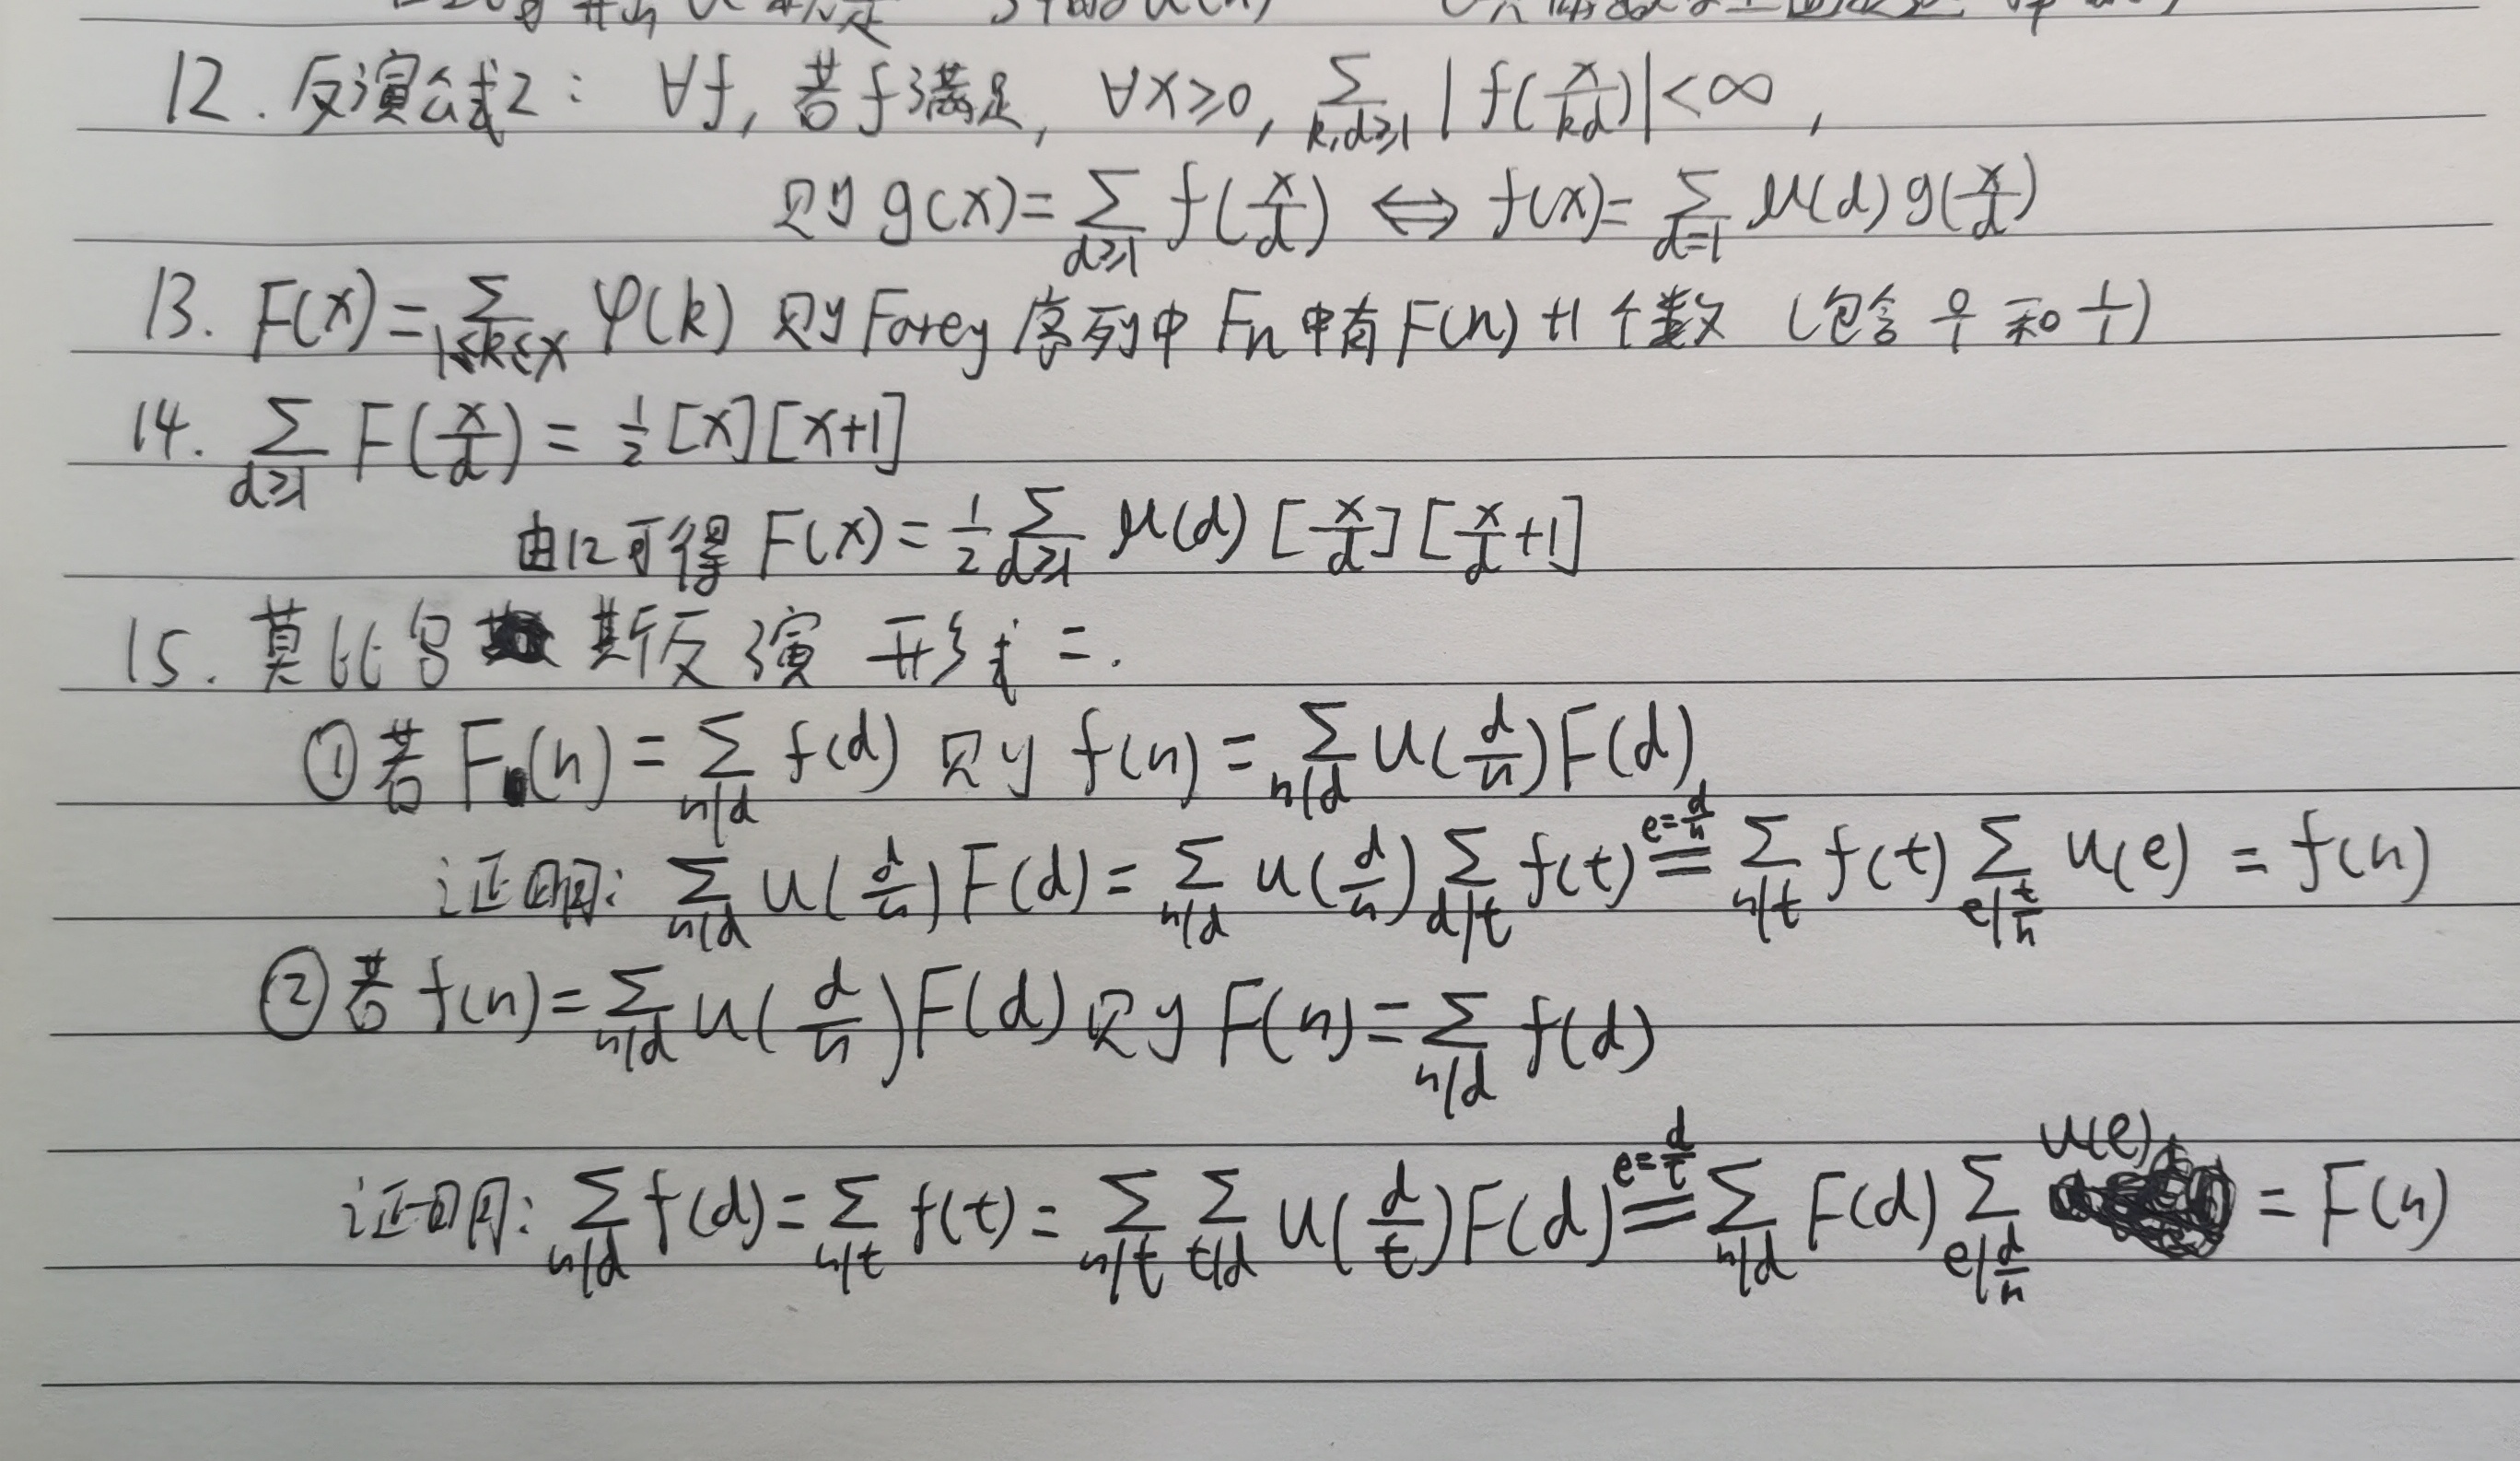 12. 反演公式2： ∀f, 若f满足, ∀x≥0, ∑_{k,d≥1} |f(x/kd)|<∞,
则 g(x)=∑_{d≥1} f(x/d) ⟺ f(x)=∑_{d=1} μ(d) g(x/d)
13. F(x)=∑_{1≤k≤x} φ(k) 则Farey序列中 Fn中有F(n)+1个数 (包含 0/1 和 1/1)
14. ∑_{d≥1} F(x/d) = 1/2 [x][x+1]
由12可得 F(x)=1/2 ∑_{d≥1} μ(d) [x/d] [x/d+1]
15. 莫比乌斯反演 形式二.
①若 F(n)=∑_{n|d} f(d) 则 f(n)=∑_{n|d} u(d/n)F(d),
证明: ∑_{n|d} u(d/n)F(d)=∑_{n|d} u(d/n)∑_{d|t} f(t) =^{e=d/n} ∑_{n|t} f(t) ∑_{e|t/n} u(e) = f(n)
②若 f(n)=∑_{n|d} u(d/n)F(d) 则 F(n)=∑_{n|d} f(d)
证明: ∑_{n|d} f(d)=∑_{n|t} f(t)=∑_{n|t} ∑_{t|d} u(d/t)F(d) =^{e=d/t} ∑_{n|d} F(d) ∑_{e|d/n} u(e) = F(n)